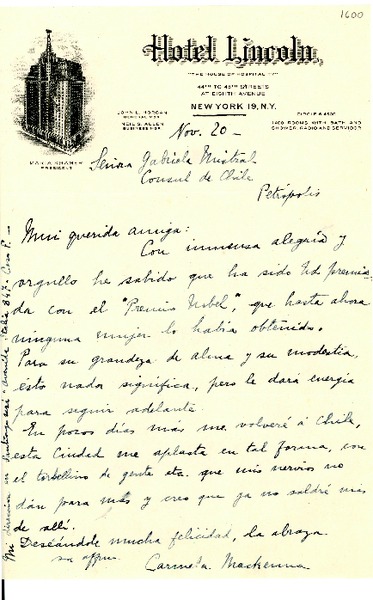 1600
Hotel Lincoln,
"THE HOUSE OF HOSPITALITY"
44TH TO 45TH STREETS
AT EIGHTH AVENUE
NEW YORK 19, N.Y.
JOHN L. HORGAN
GENERAL MGR.
BUSINESS MGR.
MARIA KRAMER
PRESIDENT
CIRCLE 6-4500
1400 ROOMS WITH BATH AND
SHOWER, RADIO AND SERVIDOR
Nov. 20 -
Señora Gabriela Mistral
Consul de Chile
Petrópolis
Muy querida amiga:
Con inmensa alegría y
orgullo he sabido que ha sido Ud premia-
da con el "Premio Nobel", que hasta ahora
ninguna mujer lo había obtenido.
Para su grandeza de alma y su modestia,
ésto nada significa, pero le dará energía
para seguir adelante.
En pocos días más me volveré á Chile,
esta Ciudad me aplasta en tal forma, con
el torbellino de gente etc. que mis nervios no
dán para más y creo que ya no saldré más
de allí.
Deseándole mucha felicidad, la abraza
su affma.
Carmela Mackenna
Mi dirección en Santiago será: Avenida Italia 847 - Casa P. -